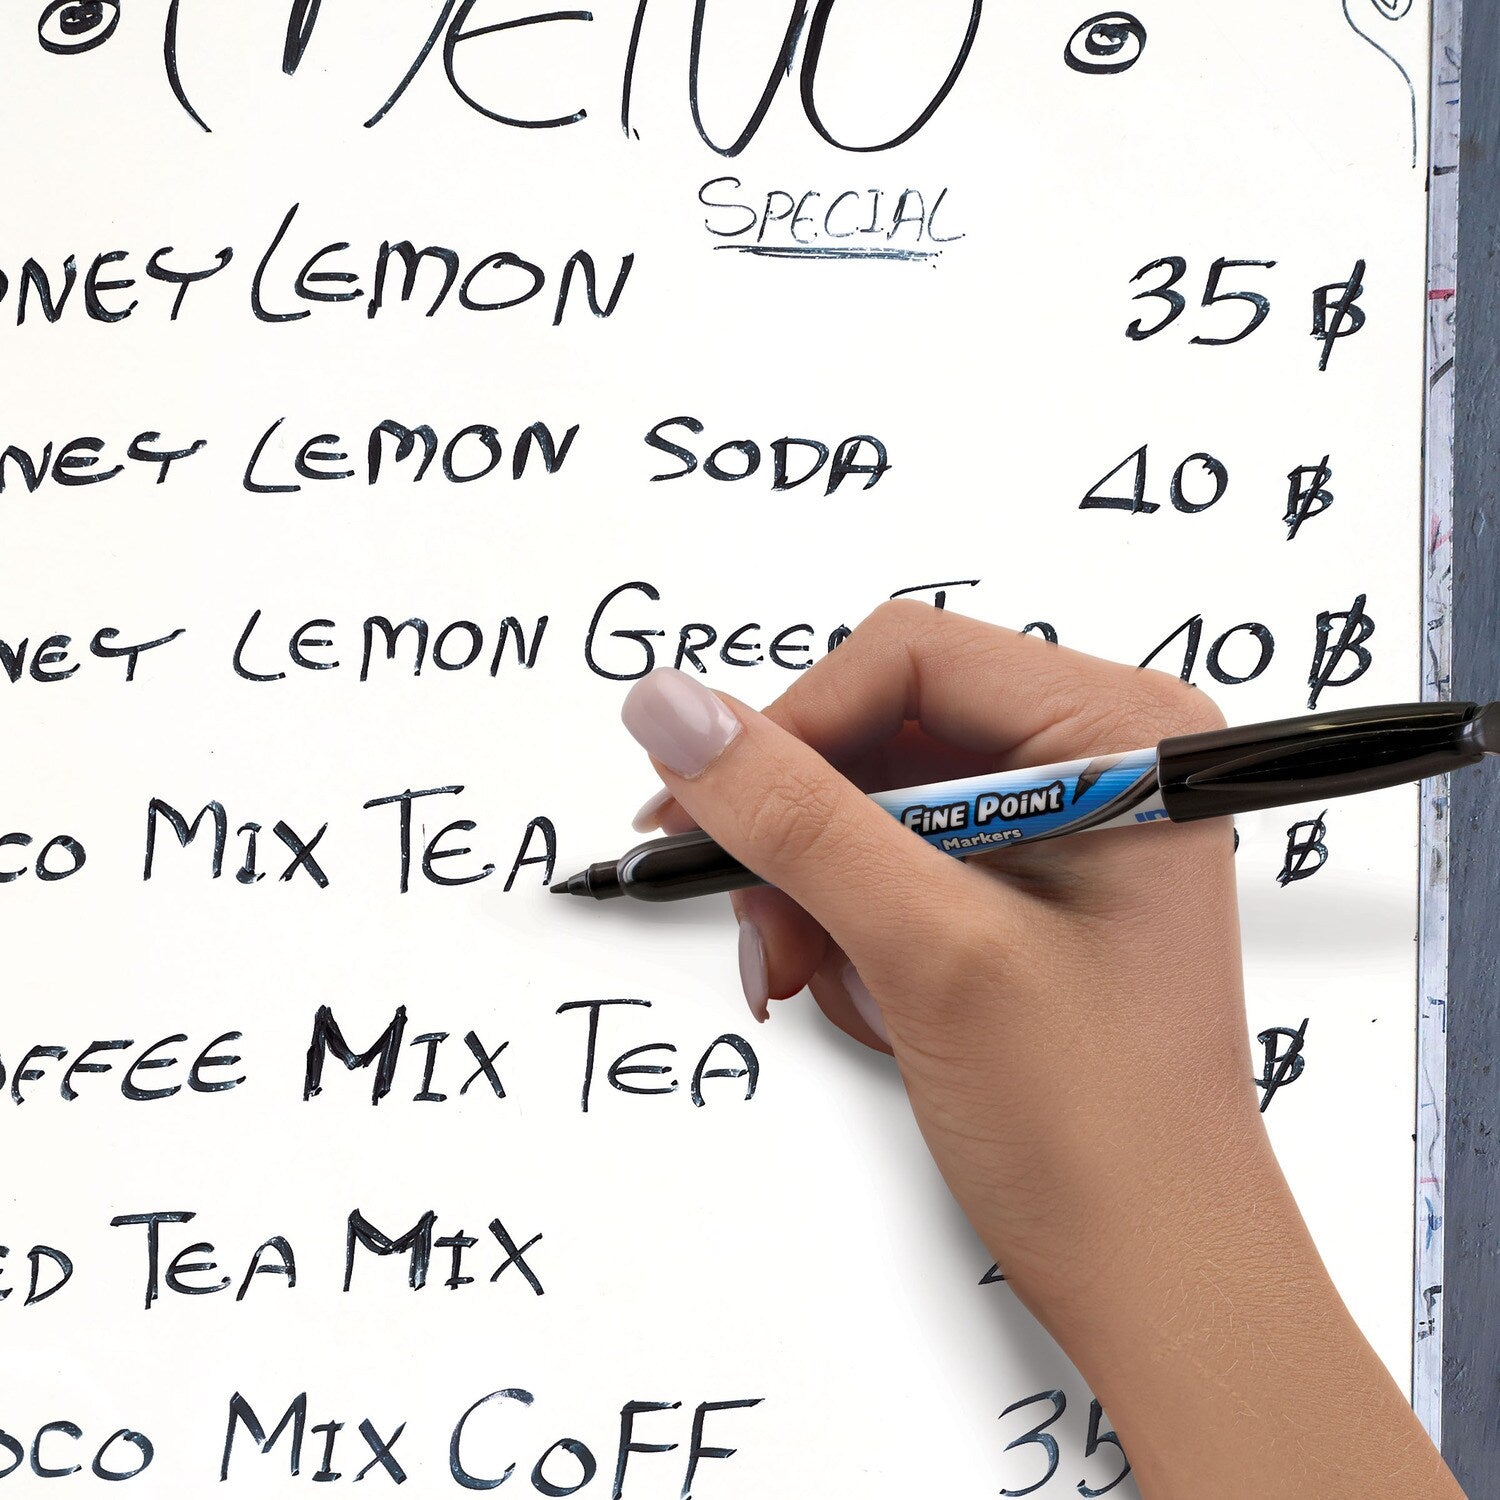 MENU
SPECIAL
ONEY LEMON 35 ฿
NEY LEMON SODA 40 ฿
NEY LEMON GREEN 40 ฿
CO MIX TEA ฿
FINE POINT
Markers
OFFEE MIX TEA ฿
ED TEA MIX
OCO MIX COFF 35